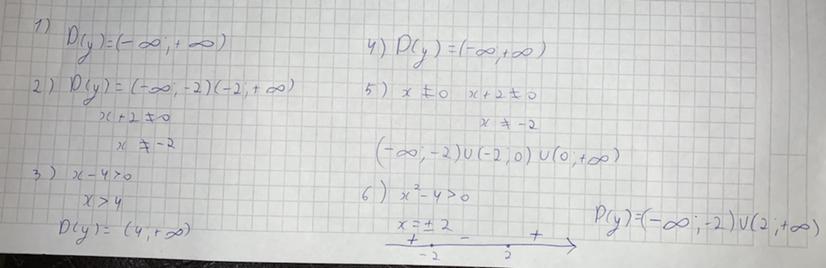 1) D(y)=(-∞;+∞)
2) D(y)=(-∞;-2)(-2;+∞)
x+2≠0
x≠-2
3) x-4>0
x>4
D(y)=(4;+∞)
4) D(y)=(-∞;+∞)
5) x≠0 x+2≠0
x≠-2
(-∞;-2)∪(-2;0)∪(0;+∞)
6) x²-4>0
x=±2
+ - +
-2 2
D(y)=(-∞;-2)∪(2;+∞)